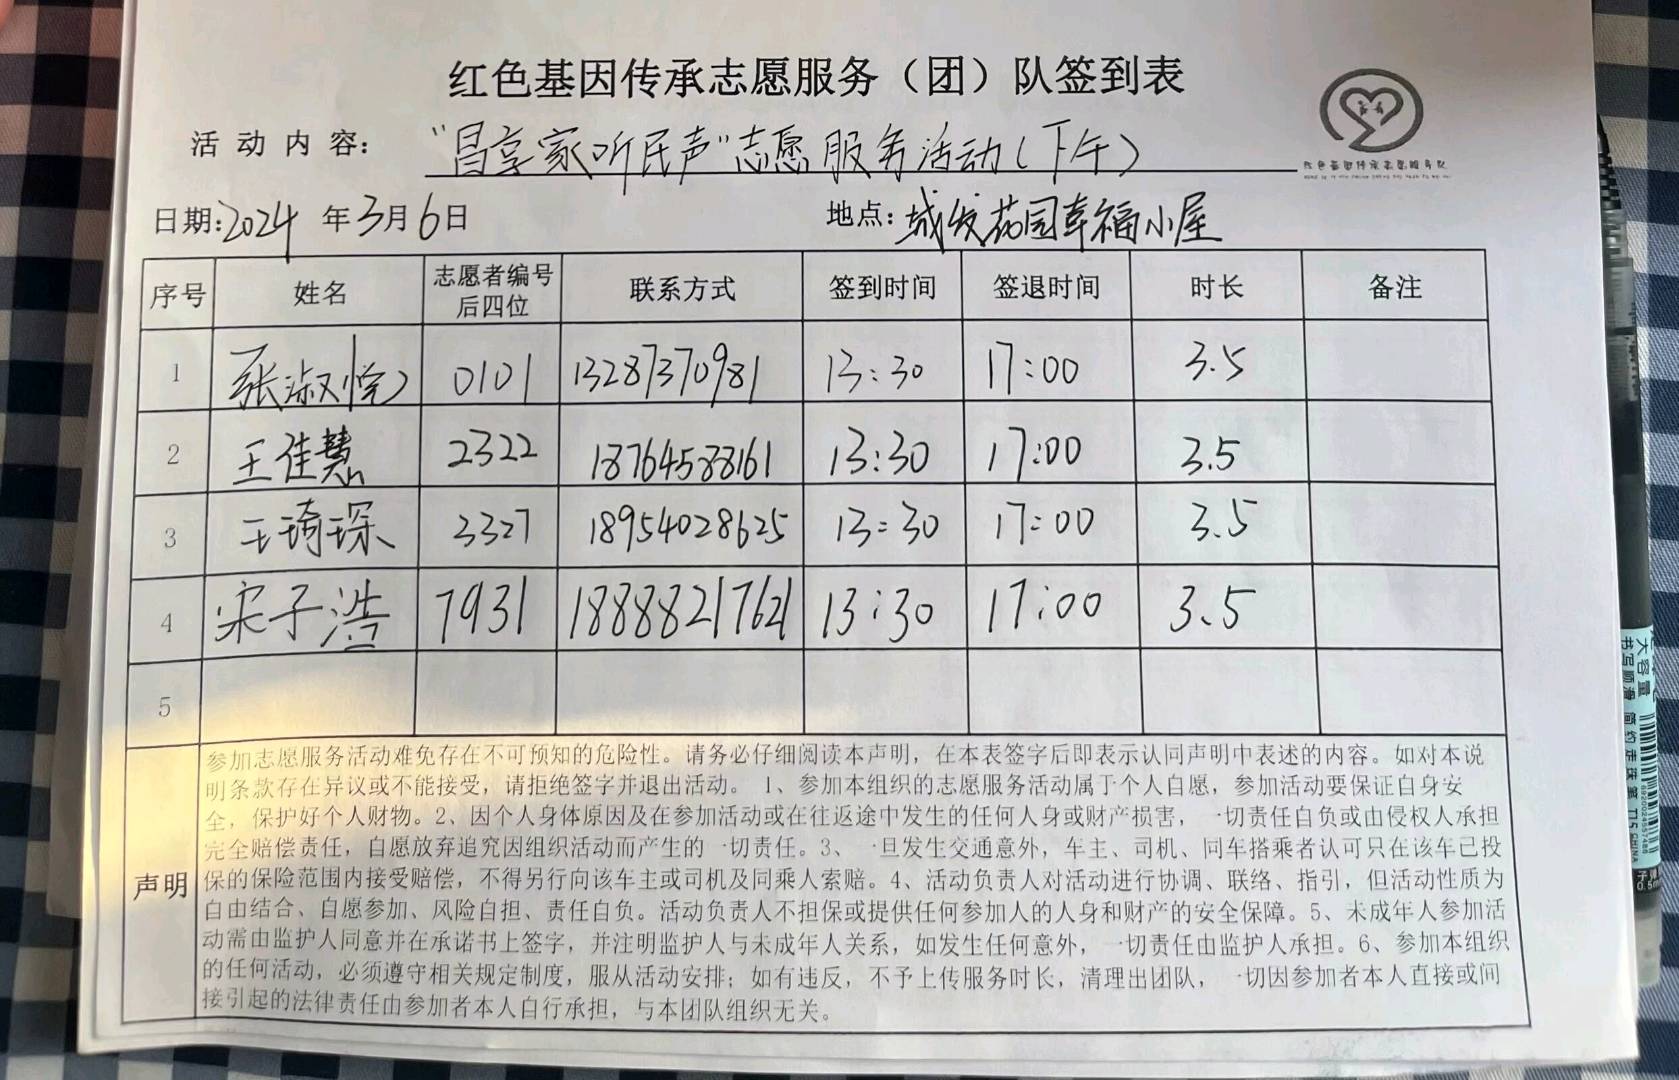 红色基因传承志愿服务（团）队签到表
活动内容：“昌享家 听民声”志愿服务活动（下午）
红色基因传承志愿服务队
日期：2024年3月6日 地点：城发花园幸福小屋
序号 姓名 志愿者编号后四位 联系方式 签到时间 签退时间 时长 备注
1 张淑 0101 13287370981 13:30 17:00 3.5
2 王佳慧 2322 18764588161 13:30 17:00 3.5
3 王琦琛 3327 18954028625 13:30 17:00 3.5
4 宋子浩 7931 18888217621 13:30 17:00 3.5
5
声明
参加志愿服务活动难免存在不可预知的危险性。请务必仔细阅读本声明，在本表签字后即表示认同声明中表述的内容。如对本说
明条款存在异议或不能接受，请拒绝签字并退出活动。 1、参加本组织的志愿服务活动属于个人自愿，参加活动要保证自身安
全，保护好个人财物。2、因个人身体原因及在参加活动或在往返途中发生的任何人身或财产损害，一切责任自负或由侵权人承担
完全赔偿责任，自愿放弃追究因组织活动而产生的一切责任。3、一旦发生交通意外，车主、司机、同车搭乘者认可只在该车已投
保的保险范围内接受赔偿，不得另行向该车主或司机及同乘人索赔。4、活动负责人对活动进行协调、联络、指引，但活动性质为
自由结合、自愿参加、风险自担、责任自负。活动负责人不担保或提供任何参加人的人身和财产的安全保障。5、未成年人参加活
动需由监护人同意并在承诺书上签字，并注明监护人与未成年人关系，如发生任何意外，一切责任由监护人承担。6、参加本组织
的任何活动，必须遵守相关规定制度，服从活动安排；如有违反，不予上传服务时长，清理出团队，一切因参加者本人直接或间
接引起的法律责任由参加者本人自行承担，与本团队组织无关。
大容量
书写顺滑